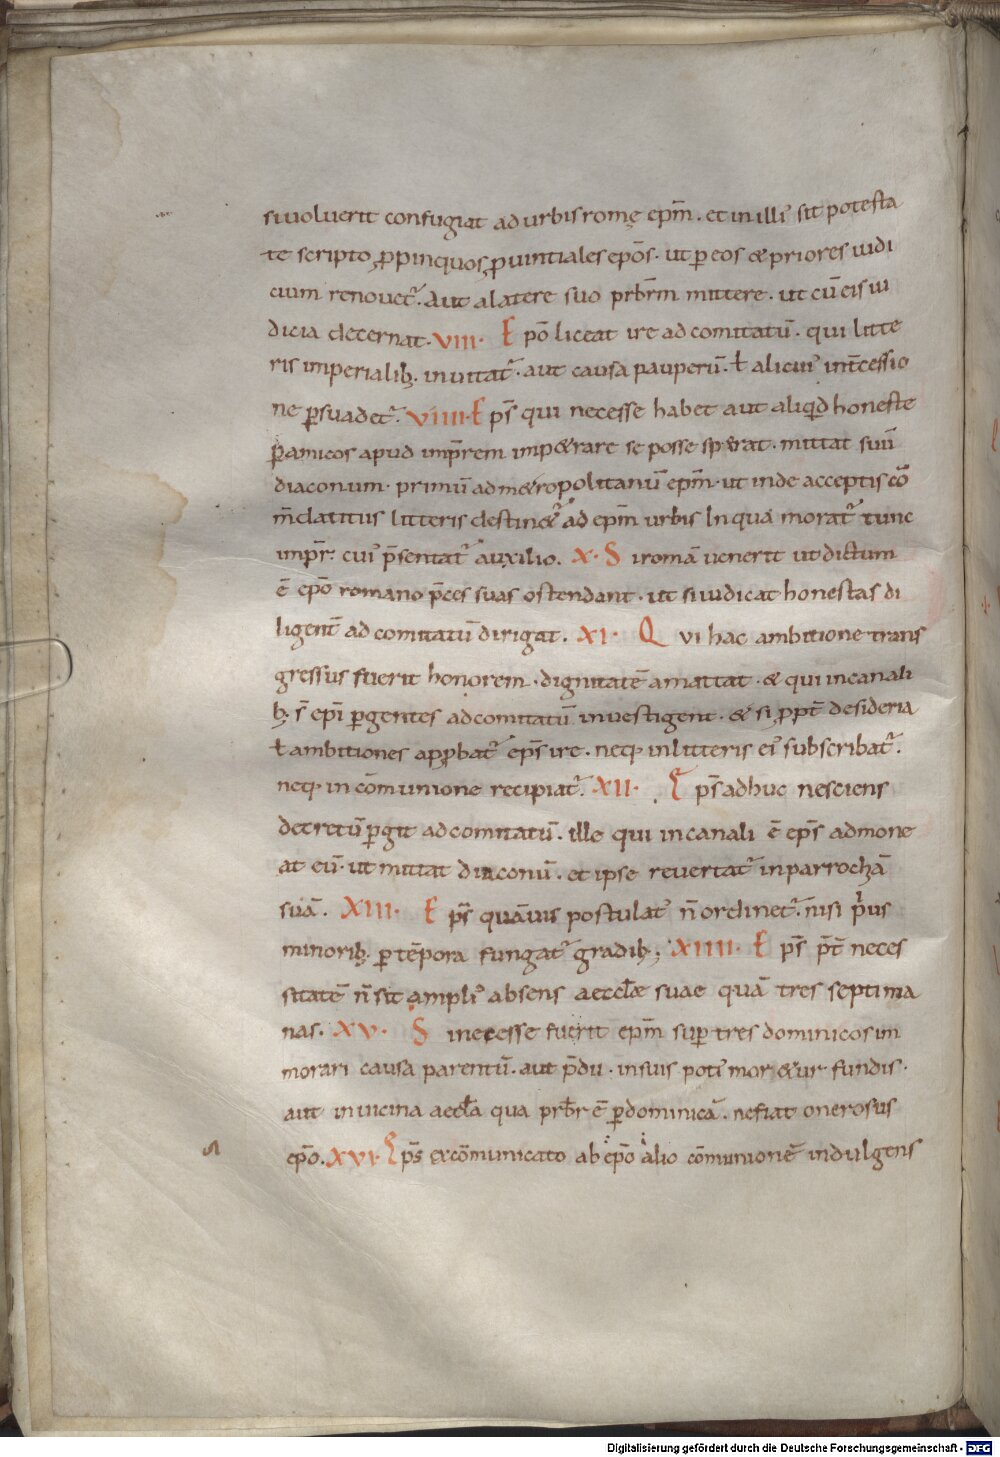 si uoluerit confugiat ad urbis romę ep̄m. et in illiꝰ sit potesta
te scripto ꝓpinquos ꝓuintiales ep̄os. ut ꝑ eos & priores iudi
cium renouet᷑. Aut a latere suo prb̄rm mittere. ut cū eis iu
dicia decernat. VIII. E pō liceat ire ad comitatū. qui litte
ris imperialib; inuitat᷑. aut causa pauperū. ł alicuiꝰ int̄cessio
ne ꝑsuadet᷑. VIIII. E ps̄ qui necesse habet aut aliqd honeste
ꝑ amicos apud imp̄rem imp&rare se posse sperat. mittat suū
diaconum. primū ad m&ropolitanū ep̄m. ut inde acceptis cō
m̄datitiis litteris destin&᷑ ad ep̄m urbis In qua morat᷑ tunc
impr̄. cuiꝰ p̄sentat᷑ auxilio. X. S i romā uenerit ut dictum
ē ep̄o romano p̄ces suas ostendant. ut si iudicat honestas di
ligent̄ ad comitatū dirigat. XI. Q ui hac ambitione trans
gressus fuerit honorem. dignitatē amittat. & qui in canali
b; s̄ ep̄i ꝑgentes ad comitatū inuestigent. & si ꝓpt̄ desideria
ł ambitiones apꝓbat᷑ ep̄s ire. neq; in litteris eiꝰ subscribat᷑.
neq; in cōmunione recipiat᷑. XII. E ps̄ adhuc nesciens
decretū ꝑgit ad comitatū. ille qui in canali ē ep̄s admone
at eū. ut mittat diaconū. et ipse reuertat᷑ in parrochiā
suā. XIII. E ps̄ quāuis postulat᷑ n̄ ordinet᷑. nisi p̄us
minorib; ꝑ tēpora fungat᷑ gradib; XIIII. E ps̄ p̄t neces
sitatē n̄ sit ampliꝰ absens aeccl̄ae suae quā tres septima
nas. XV. S i necesse fuerit ep̄m suꝑ tres dominicos im
morari causa parentū. aut p̄dii. in suis potiꝰ mor&ur fundis.
aut in uicina aeccl̄a qua prb̄r ē ꝑ dominicā. ne fiat onerosus
ep̄o. XVI. E ps̄ excōmunicato ab ep̄o alio cōmunionē indulgens
Digitalisierung gefördert durch die Deutsche Forschungsgemeinschaft - DFG